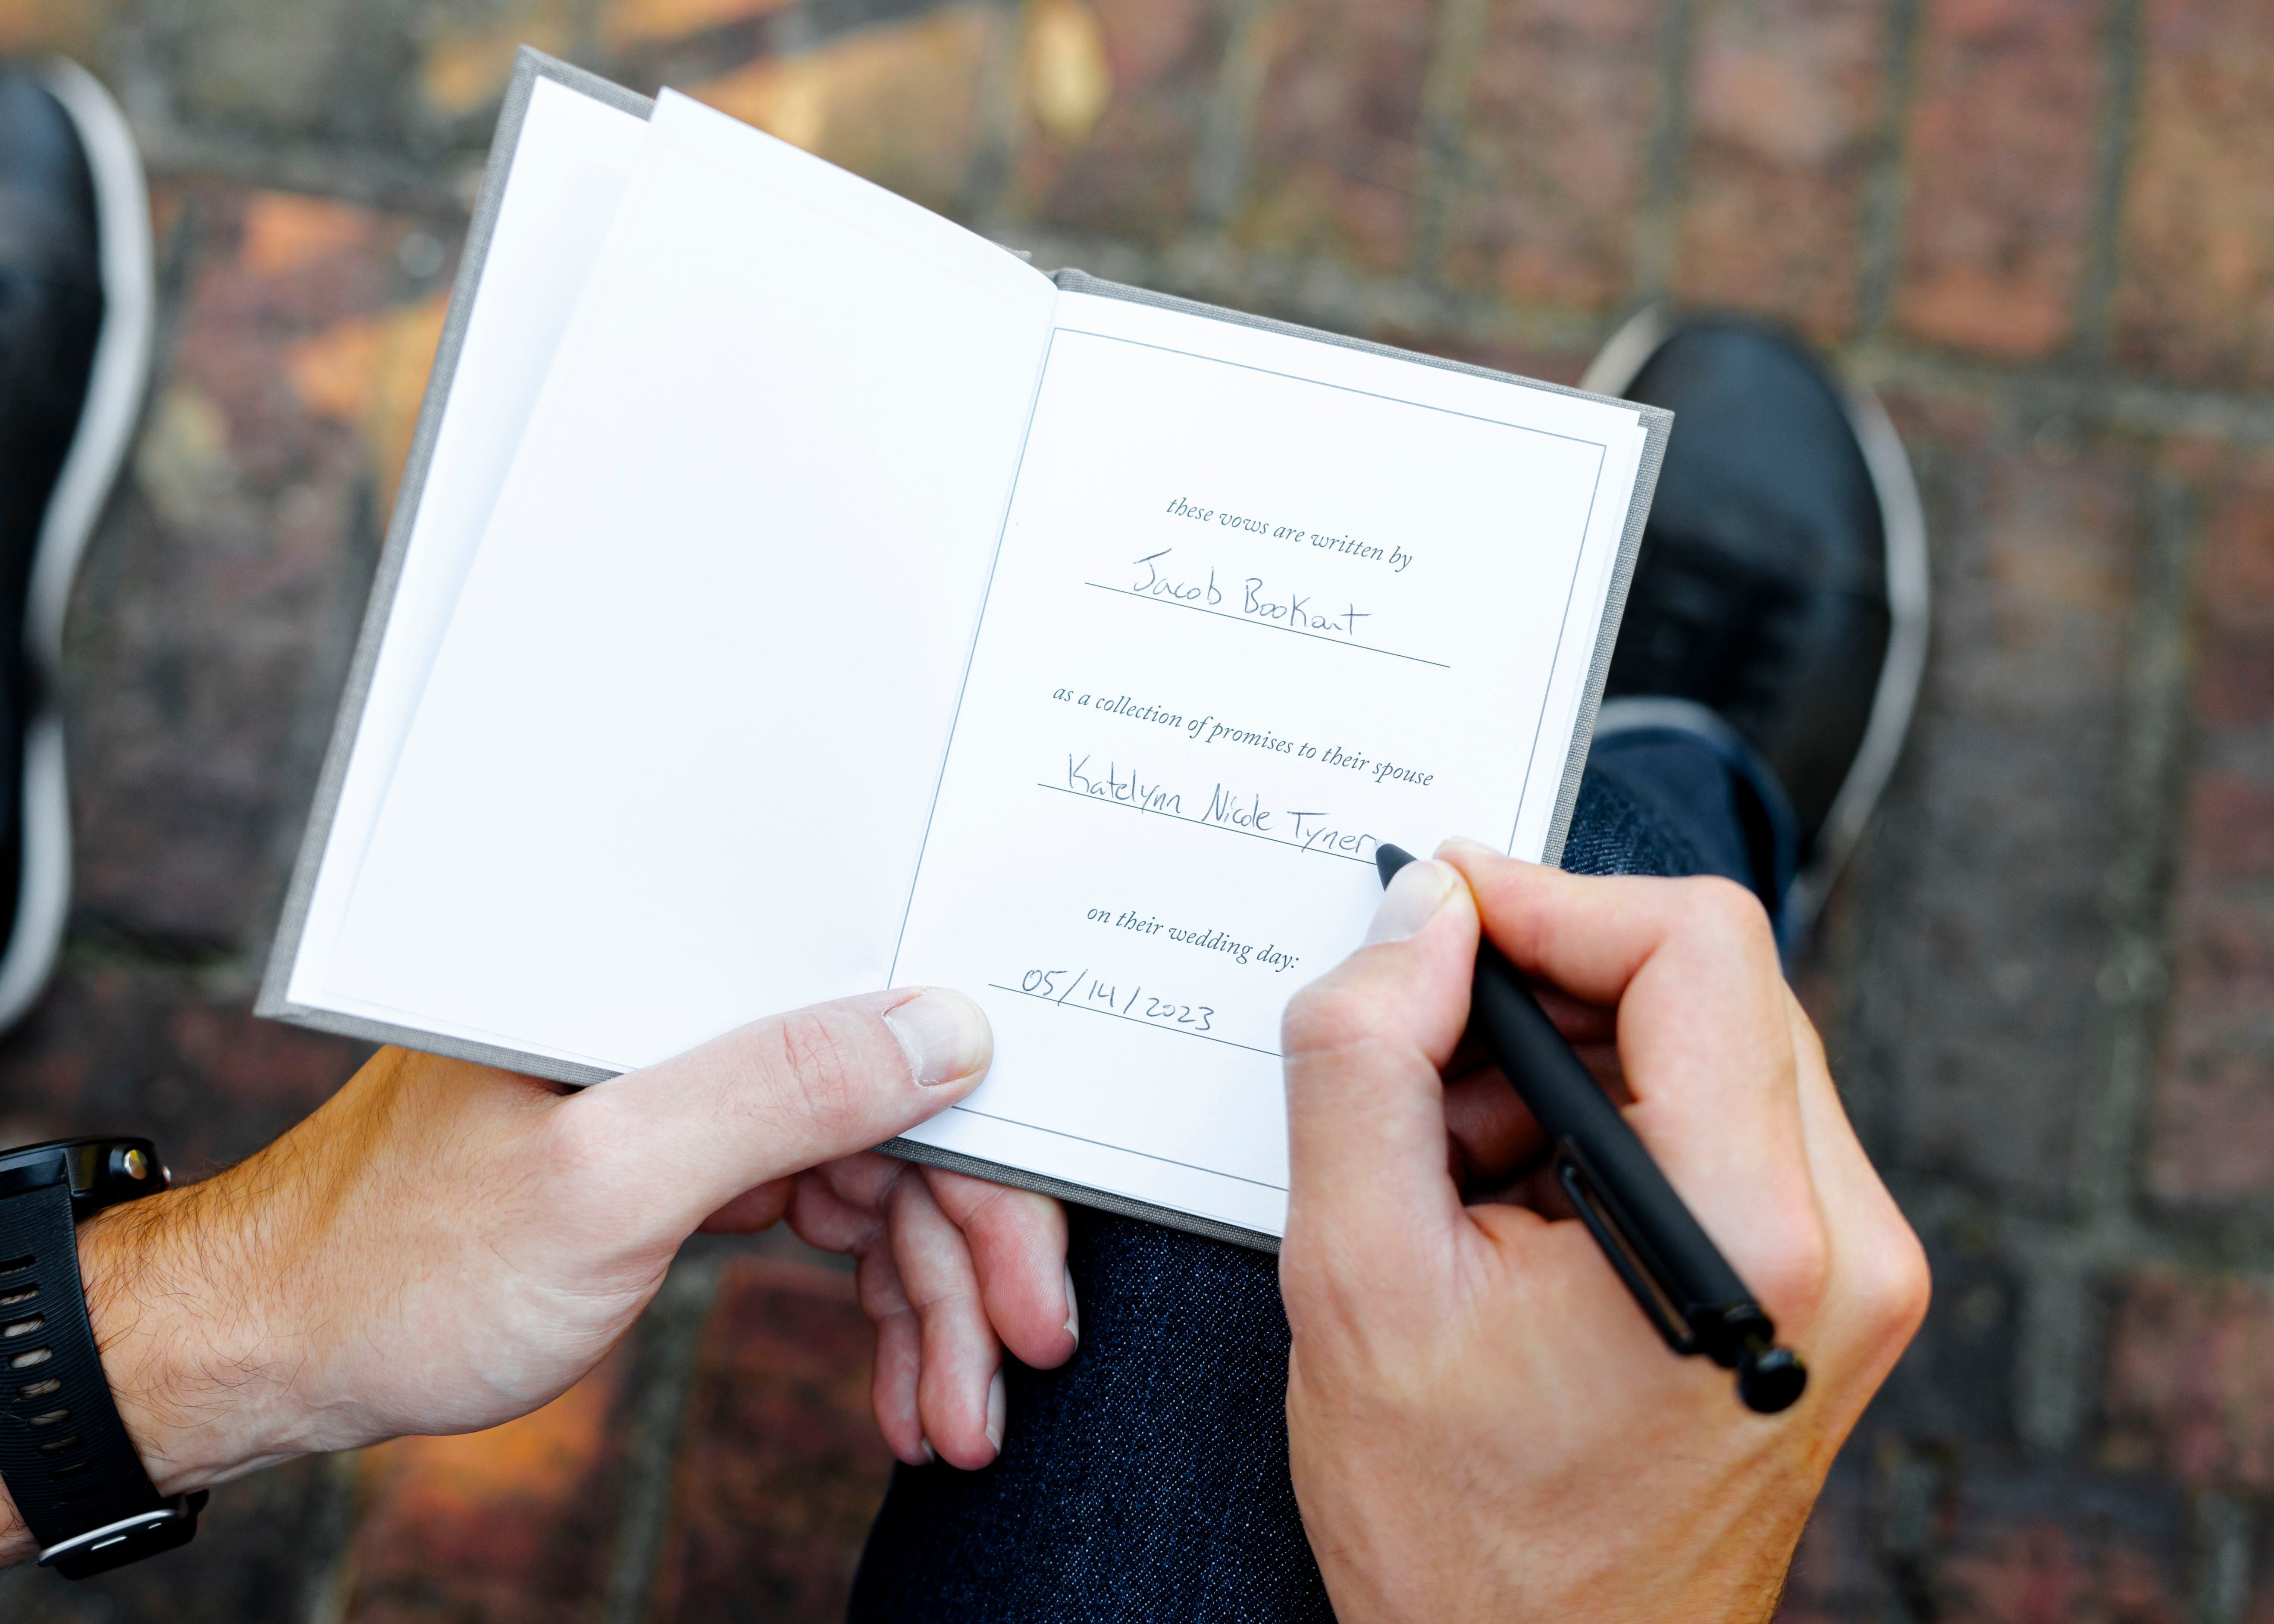 these vows are written by
Jacob Bookout
as a collection of promises to their spouse
Katelynn Nicole Tyner
on their wedding day:
05/14/2023